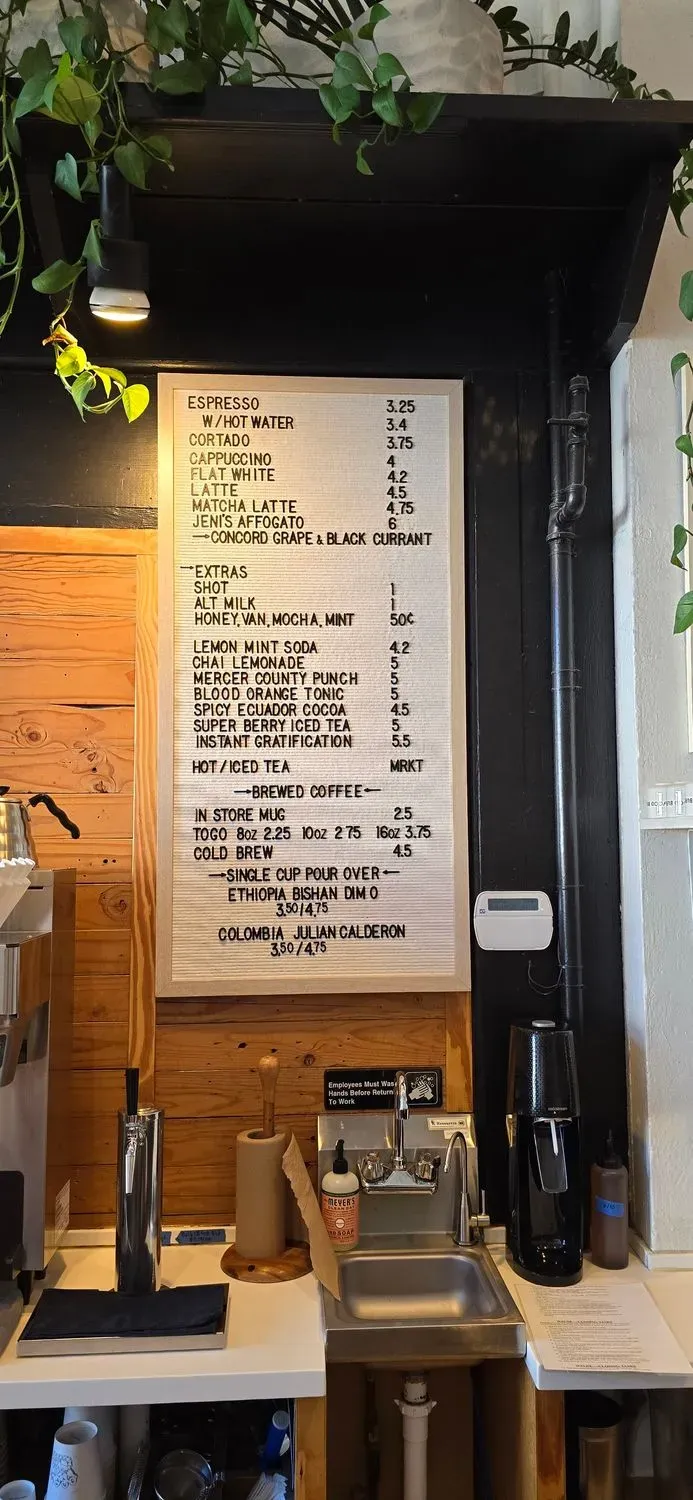 ESPRESSO 3.25
W/HOT WATER 3.4
CORTADO 3.75
CAPPUCCINO 4
FLAT WHITE 4.2
LATTE 4.5
MATCHA LATTE 4.75
JENI'S AFFOGATO 6
→CONCORD GRAPE & BLACK CURRANT
→EXTRAS
SHOT 1
ALT MILK 1
HONEY, VAN, MOCHA, MINT 50¢
LEMON MINT SODA 4.2
CHAI LEMONADE 5
MERCER COUNTY PUNCH 5
BLOOD ORANGE TONIC 5
SPICY ECUADOR COCOA 4.5
SUPER BERRY ICED TEA 5
INSTANT GRATIFICATION 5.5
HOT/ICED TEA MRKT
→BREWED COFFEE←
IN STORE MUG 2.5
TOGO 8oz 2.25 10oz 2 75 16oz 3.75
COLD BREW 4.5
→SINGLE CUP POUR OVER←
ETHIOPIA BISHAN DIM O
3.50/4.75
COLOMBIA JULIAN CALDERON
3.50/4.75
Employees Must
Hands Before Return
To Work
MEYER'S
CLEAN DAY